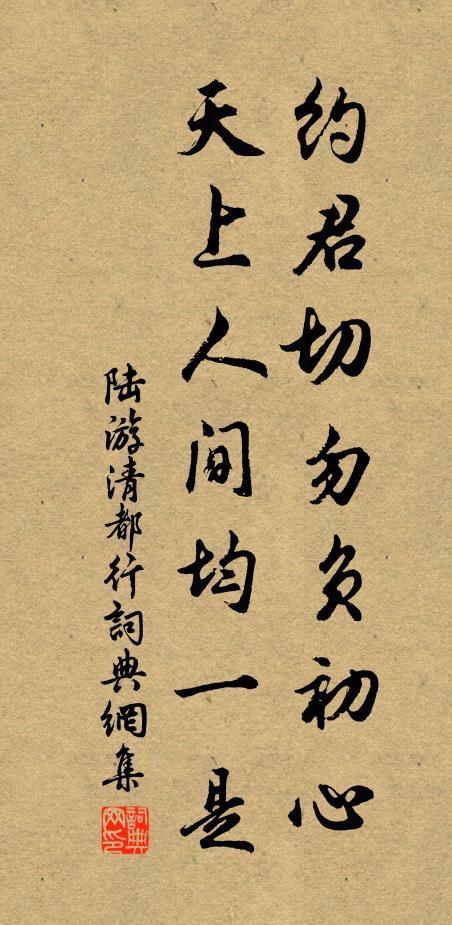 约君切勿负初心
天上人间均一是
陆游清都行詞典網集
詞典网印